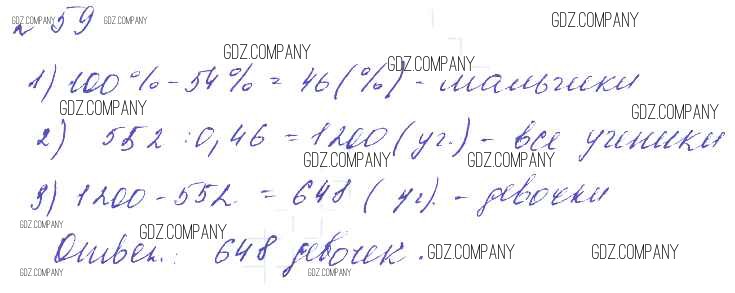 № 59
1) 100% - 54% = 46 (%) - мальчики
2) 552 : 0,46 = 1200 (уч.) - все ученики
3) 1200 - 552 = 648 (уч). - девочки
Ответ.: 648 девочек.
GDZ.COMPANY GDZ.COMPANY GDZ.COMPANY
GDZ.COMPANY GDZ.COMPANY
GDZ.COMPANY GDZ.COMPANY
GDZ.COMPANY GDZ.COMPANY
GDZ.COMPANY GDZ.COMPANY
GDZ.COMPANY GDZ.COMPANY
GDZ.COMPANY GDZ.COMPANY